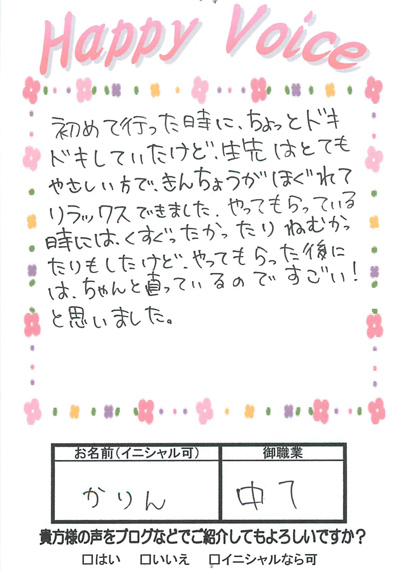 Happy Voice
初めて行った時に、ちょっとドキ
ドキしていたけど、先生はとても
やさしい方で、きんちょうがほぐれて
リラックスできました。やってもらっている
時には、くすぐったかったりねむかっ
たりもしたけど、やってもらった後に
は、ちゃんと直っているのですごい!
と思いました。
お名前(イニシャル可) 御職業
かりん 中1
貴方様の声をブログなどでご紹介してもよろしいですか?
□はい □いいえ □イニシャルなら可